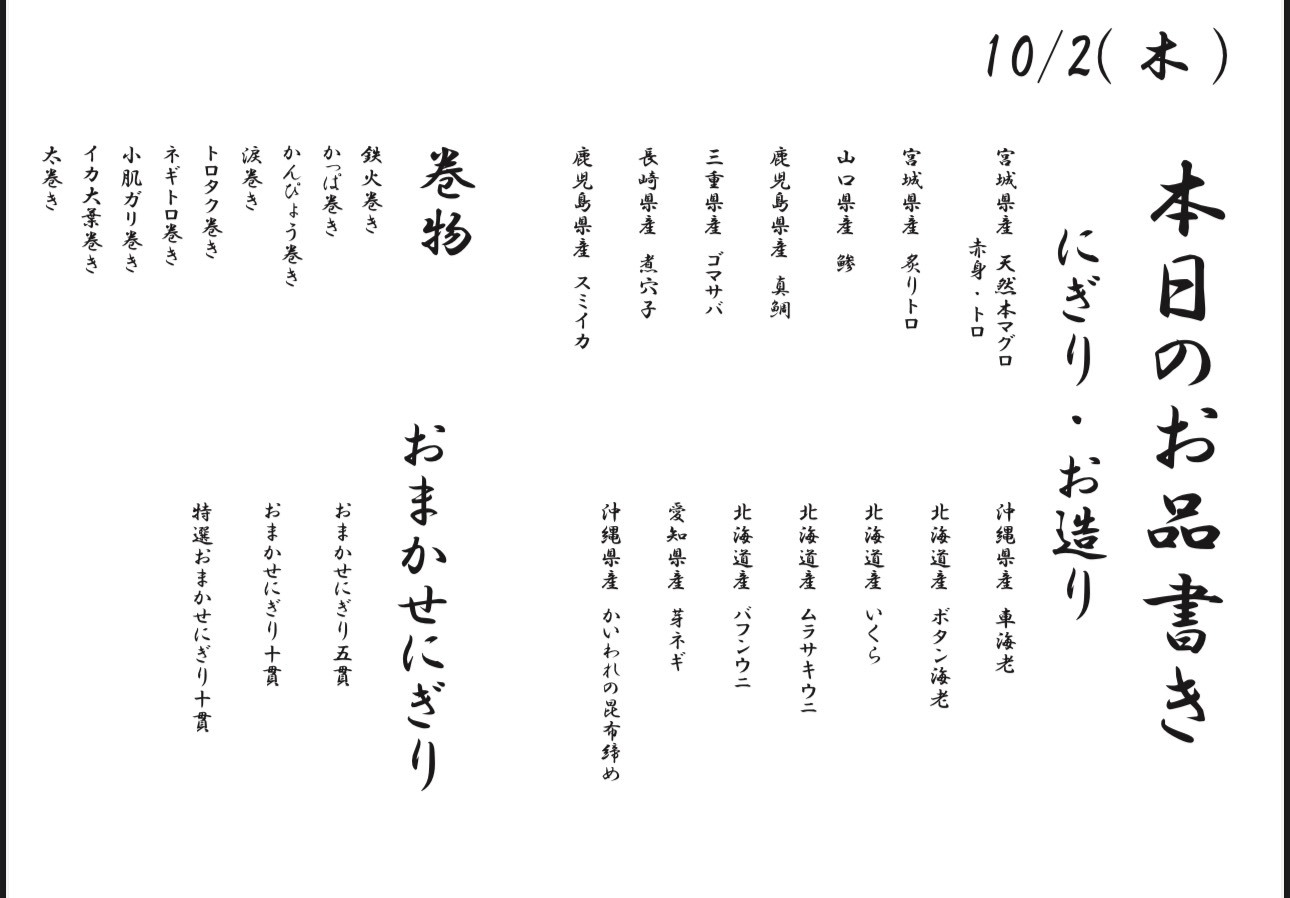 10/2( 木 )
本日のお品書き
にぎり・お造り
宮城県産 天然本マグロ
赤身・トロ
宮城県産 炙りトロ
山口県産 鯵
鹿児島県産 真鯛
三重県産 ゴマサバ
長崎県産 煮穴子
鹿児島県産 スミイカ
沖縄県産 車海老
北海道産 ボタン海老
北海道産 いくら
北海道産 ムラサキウニ
北海道産 バフンウニ
愛知県産 芽ネギ
沖縄県産 かいわれの昆布締め
巻物
鉄火巻き
かっぱ巻き
かんぴょう巻き
涙巻き
トロタク巻き
ネギトロ巻き
小肌ガリ巻き
イカ大葉巻き
太巻き
おまかせにぎり
おまかせにぎり五貫
おまかせにぎり十貫
特選おまかせにぎり十貫